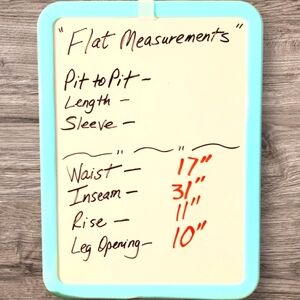 "Flat Measurements"
Pit to Pit -
Length -
Sleeve -
" "
Waist - 17"
Inseam - 31"
Rise - 11"
Leg Opening - 10"